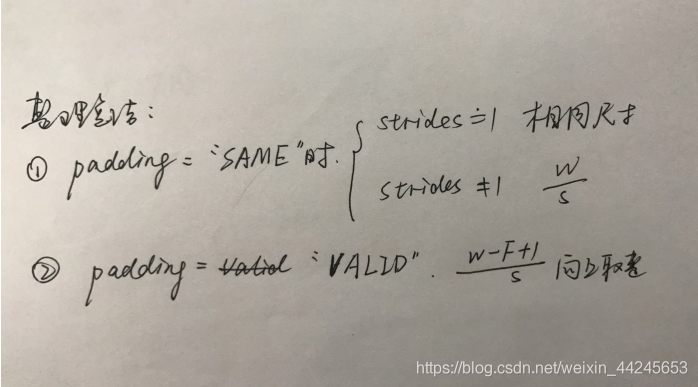 整理总结：
① padding = "SAME"时. { strides = 1 相同尺寸
strides ≠ 1 W/S
② padding = ~~Valid~~ "VALID". (W-F+1)/S 向上取整
https://blog.csdn.net/weixin_44245653